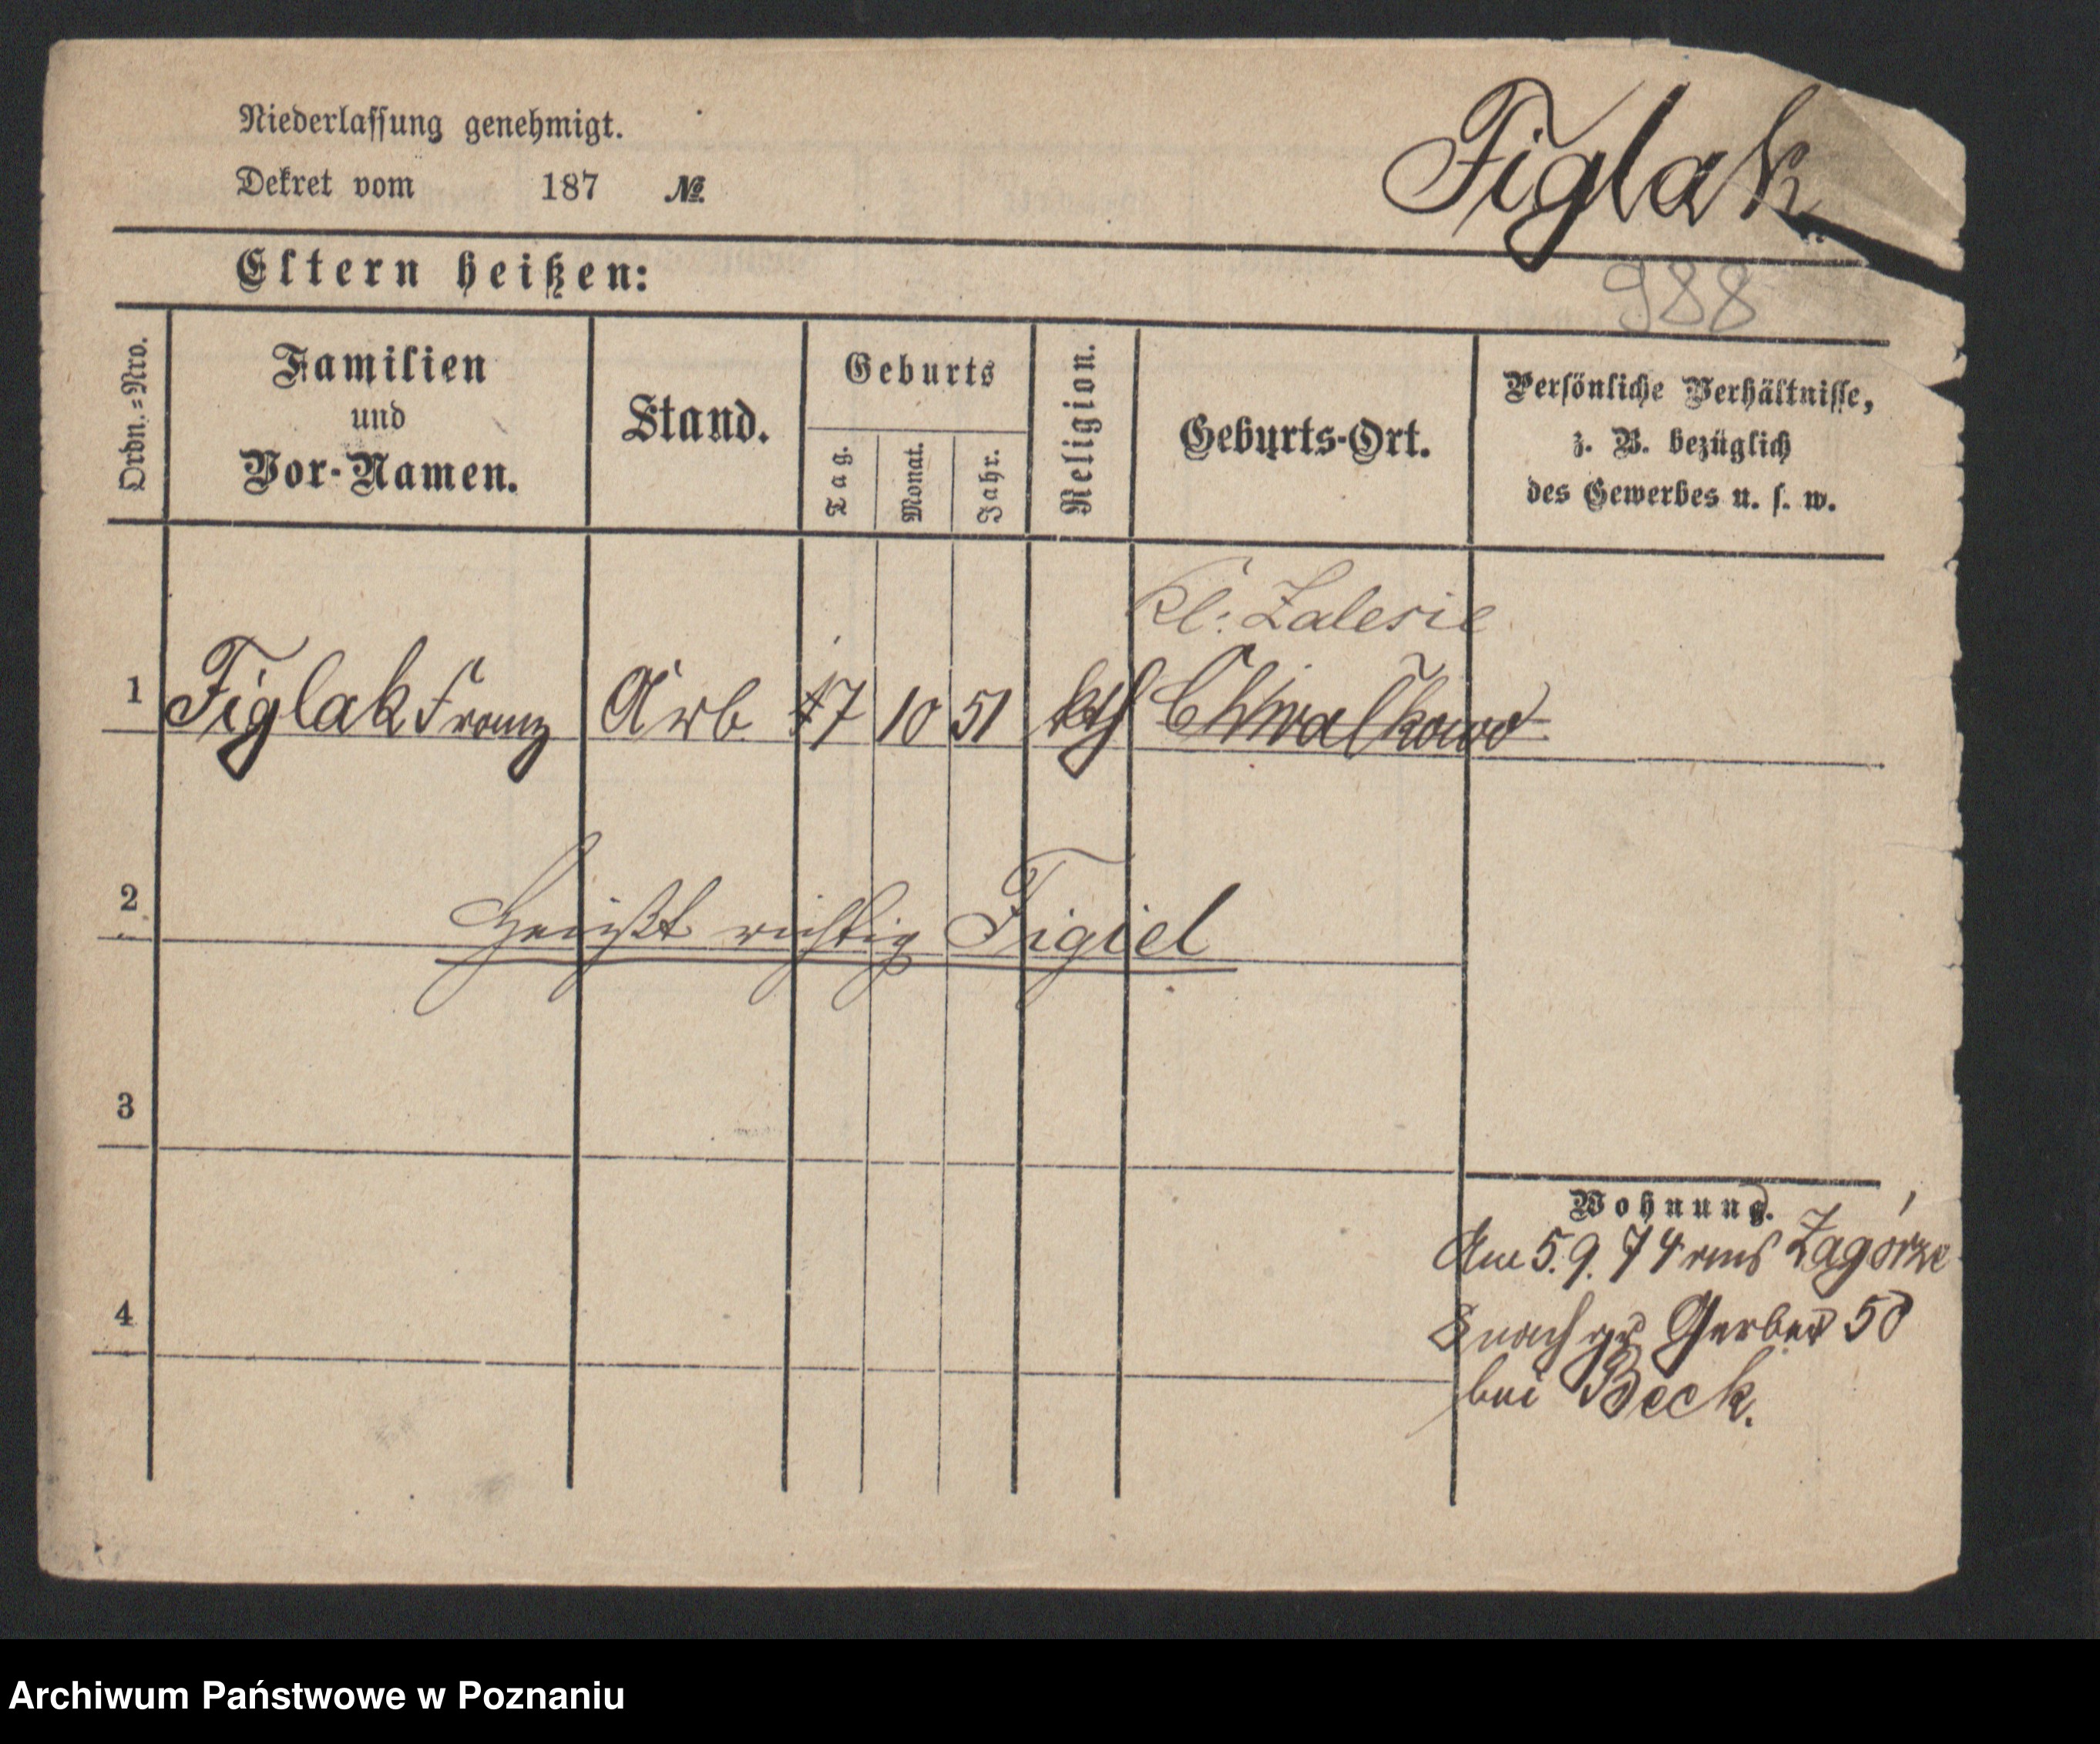 Niederlassung genehmigt.
Dekret vom 187 №.
Figlak
988
Eltern heißen:
Ordn.-Nro.
Familien
und
Vor-Namen.
Stand.
Geburts
Tag.
Monat.
Jahr.
Religion.
Geburts-Ort.
Persönliche Verhältnisse,
z. B. bezüglich
des Gewerbes u. s. w.
Kl: Zalesie
1 Figlak Franz Arb 17 10 51 kth Chwalkowo
2 Heißt richtig Figiel
3
4
Wohnung.
Am 5. 9. 74 aus Zagórze
nach gr Gerber 50
bei Beck.
Archiwum Państwowe w Poznaniu